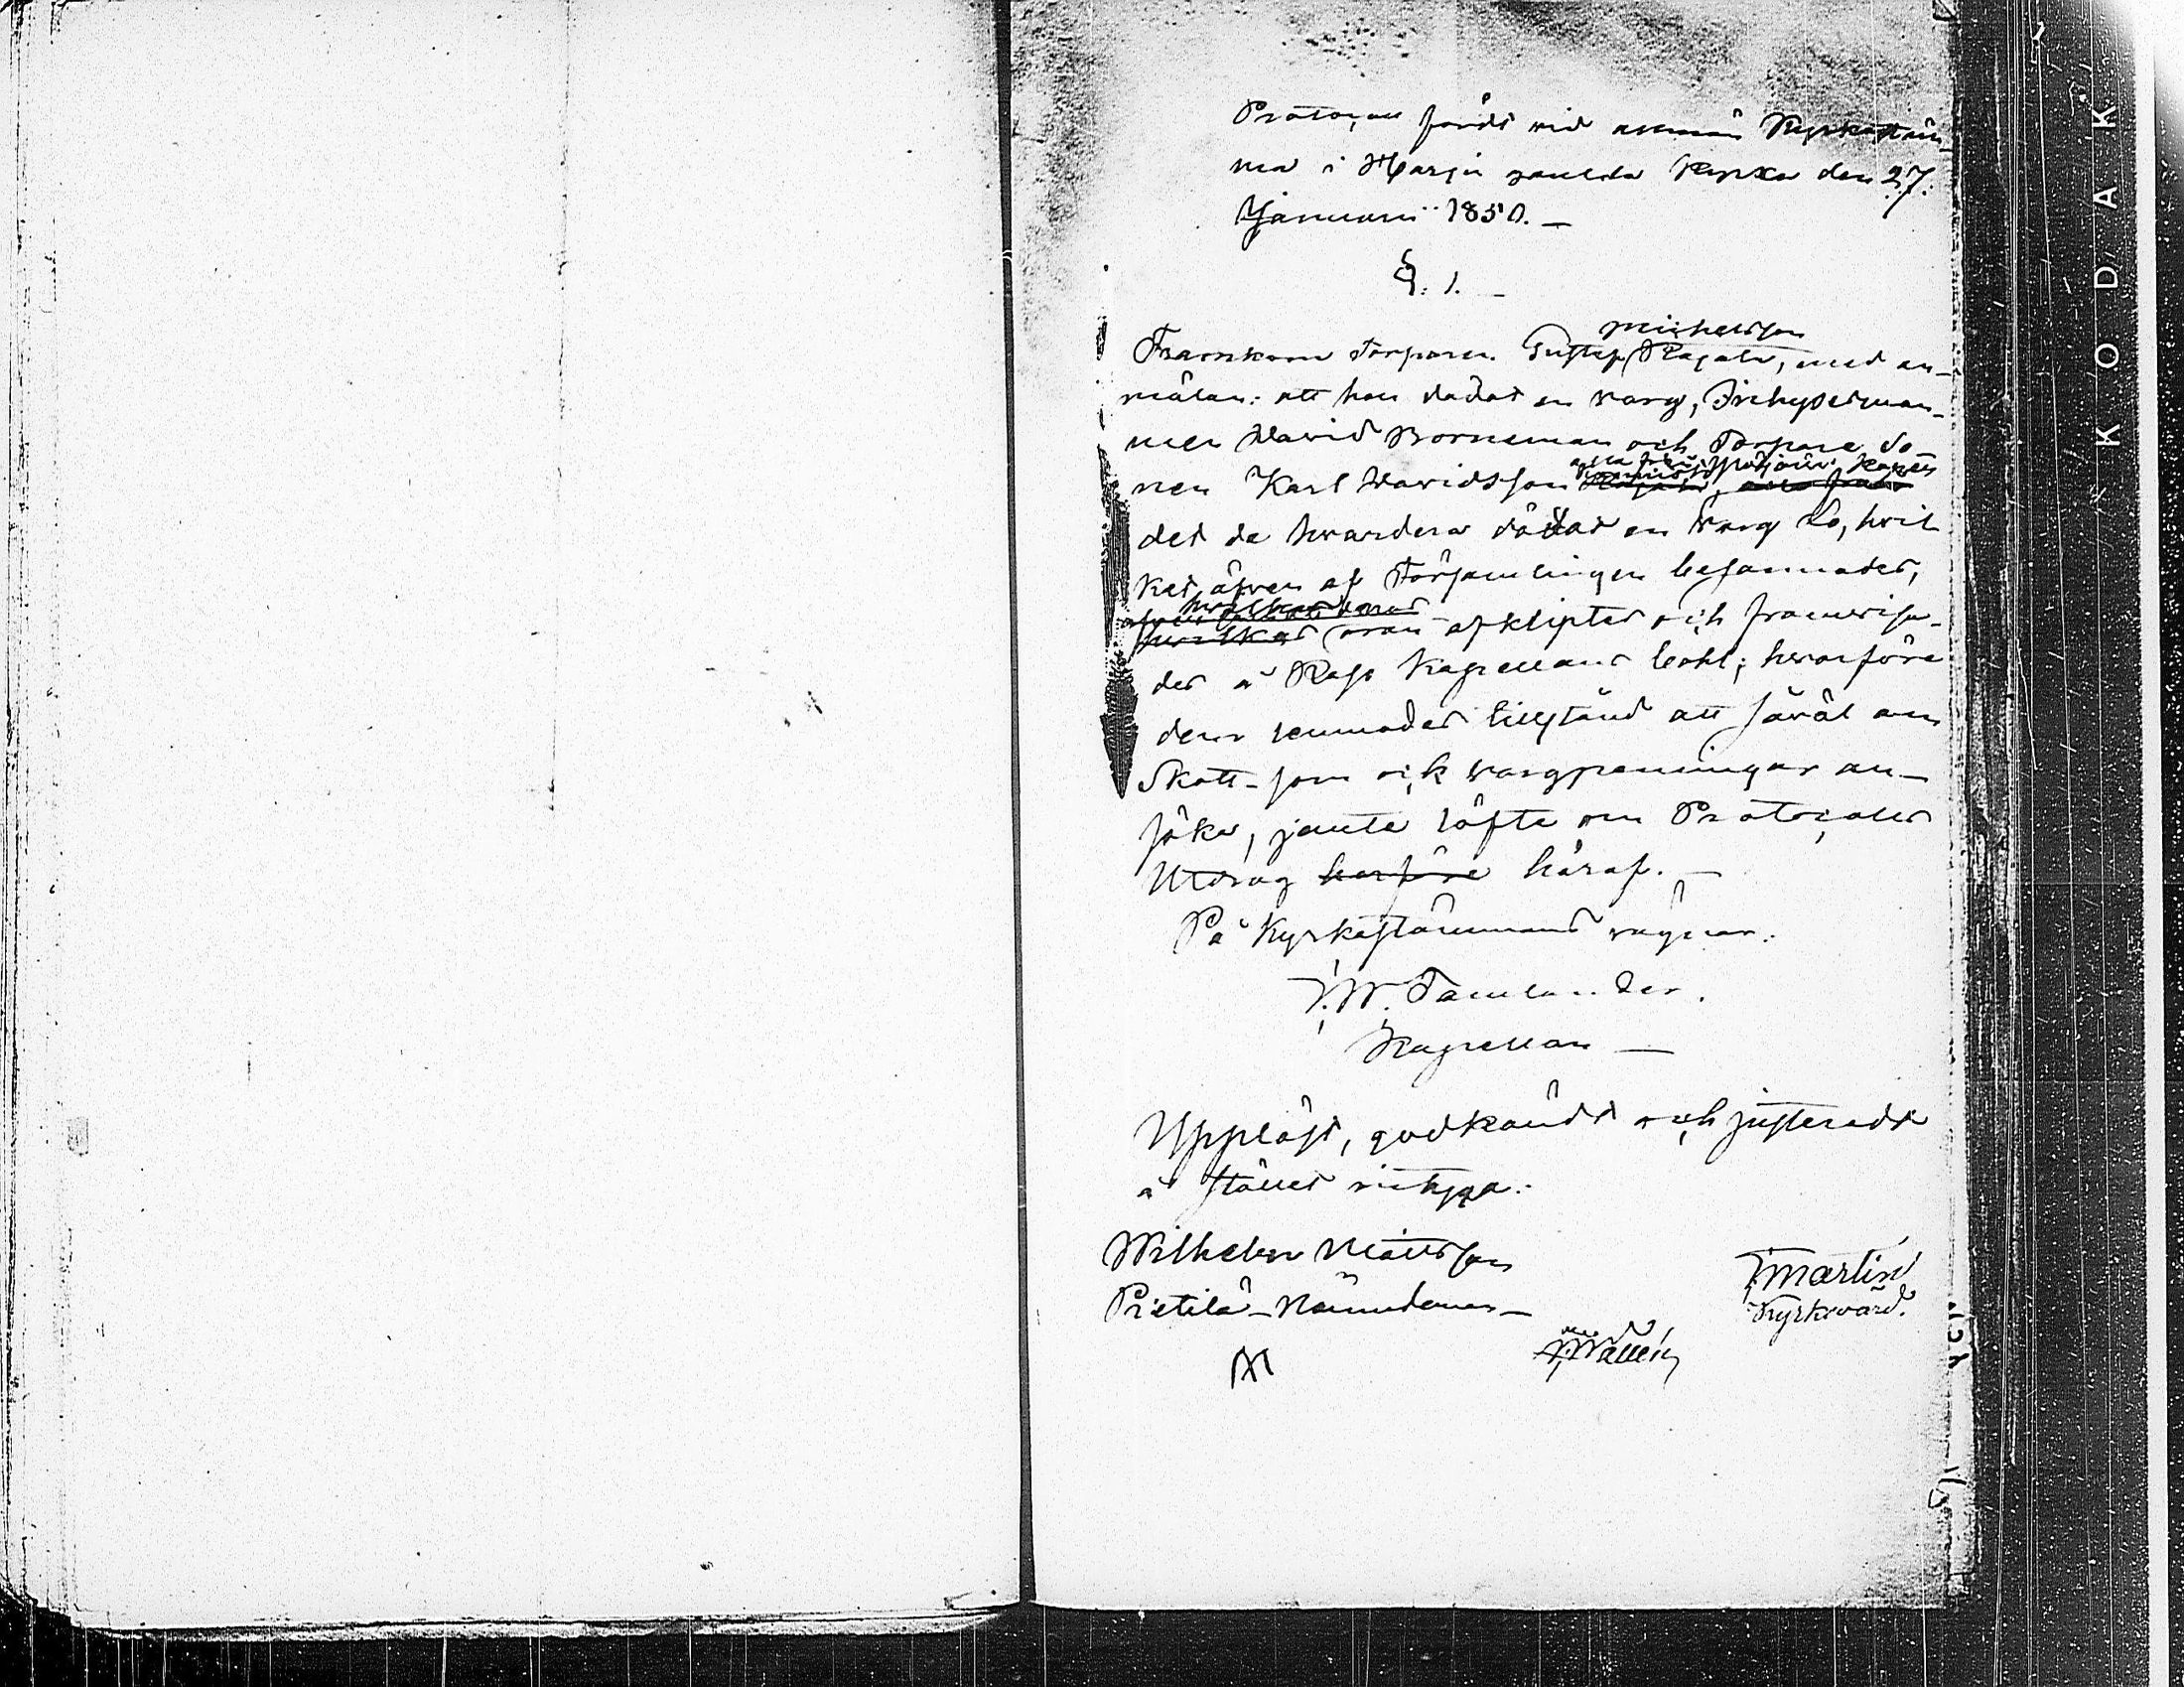 Protocoll fördt vid allmän Kyrkostäm
ma i Harju gamla Kyrka den 27.
Januari 1850. —
§. 1. —
Michelsson
Framkom Torparen Gustaf Rajala, med an-
mälan: att han dödat en varg, Inhysesman-
nen David Borneman och Torpare So-
nen Karl Davidsson alla från Kapell
det de hvardera dödat en Warg Lo, hvil
ket äfven af Församlingen besannades,
hvilkas
hvilkas öron afkliptes och framvisa-
des å Kapellans bohl; hvarföre
dem lemnades tillstånd att såväl om
Skott- som ock vargpenningar an-
söka, jemte löfte om Protocolls
Utdrag härföre häraf. —
På Kyrkostämmans vägnar:
J.W. Tamlander.
Kapellan —
Uppläst, godkändt och justeradt
å stället intyga:
Wilhelm Mattsson
Pietilä - Nämndeman —
J Martin
Kyrkovärd.
J Wallen
KODAK